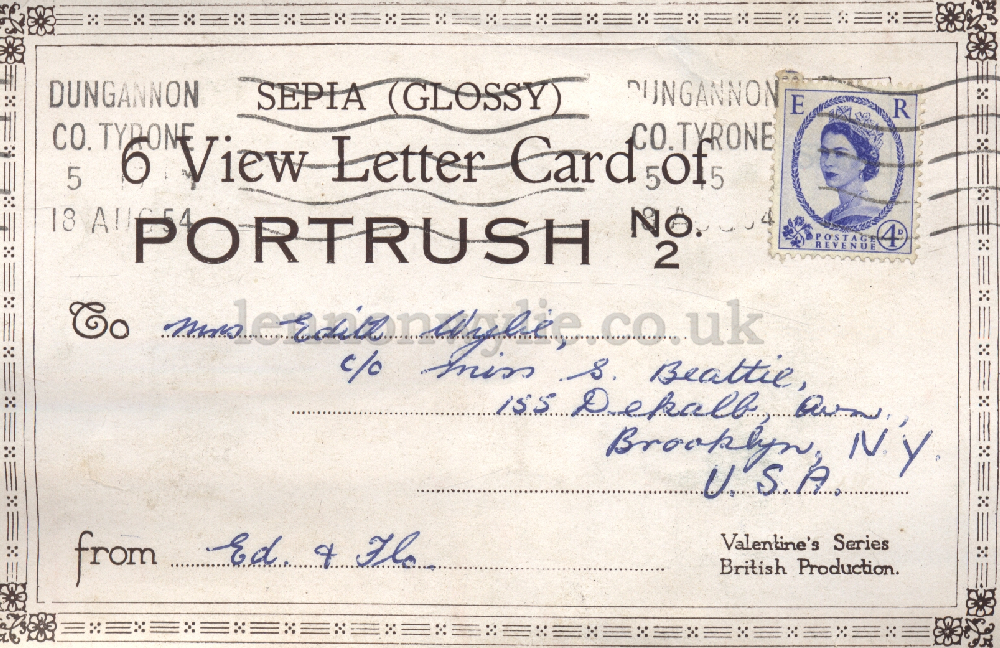 DUNGANNON
CO. TYRONE
5
18 AUG 54
SEPIA (GLOSSY)
6 View Letter Card of
PORTRUSH No. 2
UNGANNON
CO. TYRONE
5 15
E R
POSTAGE
REVENUE
4D
To Mrs Edith Wylie,
c/o Miss S. Beattie,
155 Dekalb, Avn.,
Brooklyn, N.Y.
U.S.A.
from Ed. & Flo.
Valentine's Series
British Production.
lennonwylie.co.uk